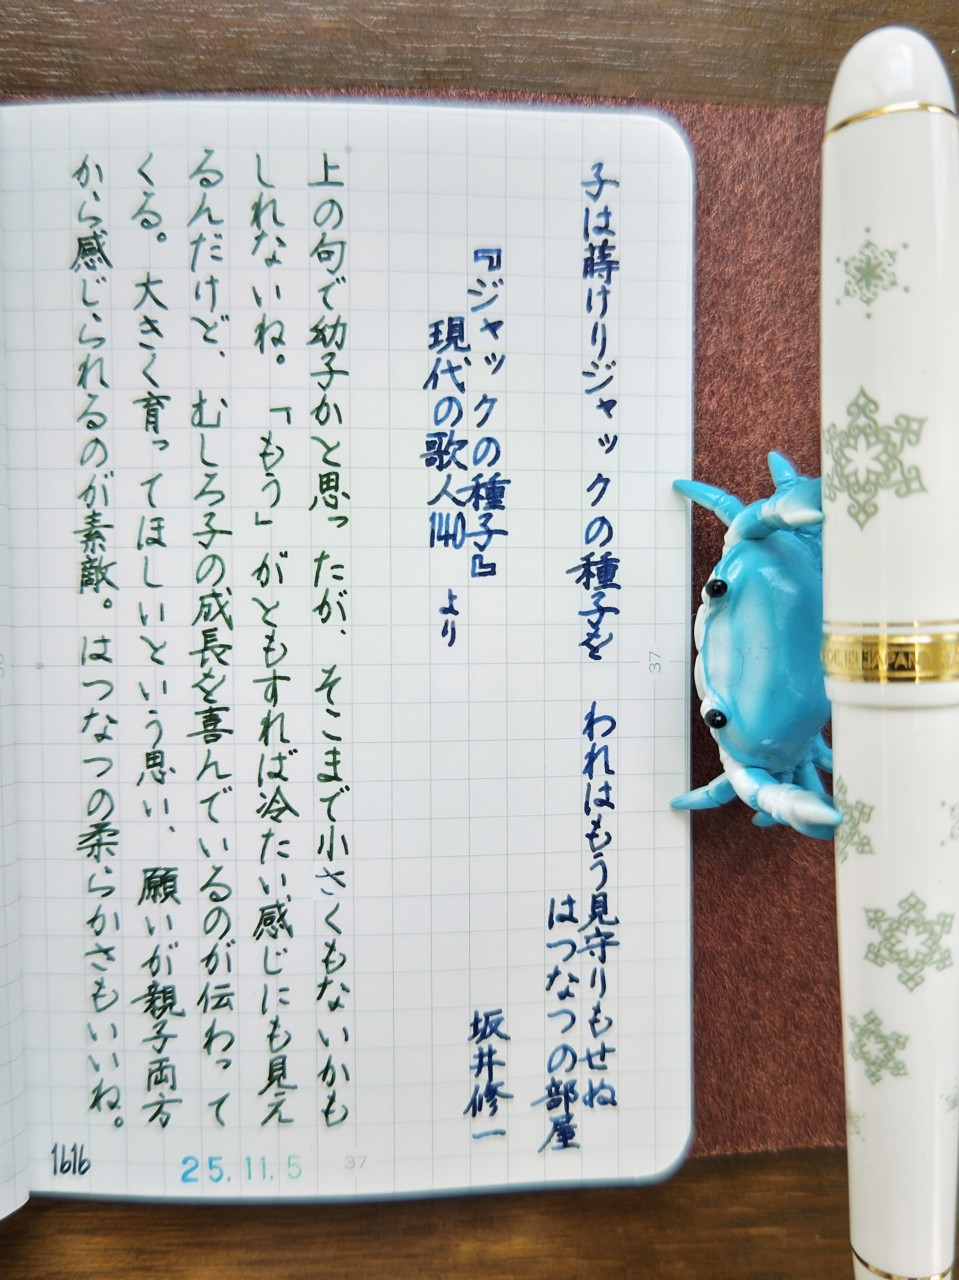 子は蒔けりジャックの種子を われはもう見守りもせぬ
はつなつの部屋
坂井修一
『ジャックの種子』
現代の歌人140 より
上の句で幼子かと思ったが、そこまで小さくもないかも
しれない​ね。「もう」がともすれば冷たい感じにも見え
るんだけど、むしろ子の成長を喜んでいるのが伝わって
くる。大きく育ってほしいという思い、願いが親子両方
から感じられるのが素敵。はつなつの柔らかさもいいね。
1616
25.11.5
37
37
JAPAN